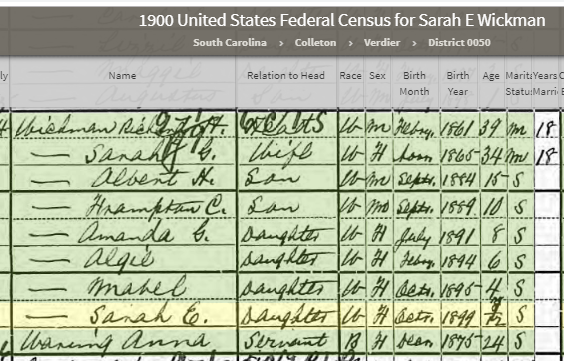 1900 United States Federal Census for Sarah E Wickman
South Carolina › Colleton › Verdier › District 0050
ly Name Relation to Head Race Sex Birth Month Birth Year Age Marita Status Years Marri
Wickman W M Febry. 1861 39 M 18
— Sarah G. Wife W F 1865 34 M 18
— Albert H. Son W M Septr. 1884 15 S
— Hrampton C. Son W M Septr. 1889 10 S
— Amanda G. Daughter W F July 1891 8 S
— Algie Daughter W F Febry. 1894 6 S
— Mabel Daughter W F Octr. 1895 4 S
— Sarah E. Daughter W F Octr. 1899 S
Wareing Anna Servant B F Decr. 1875 24 S